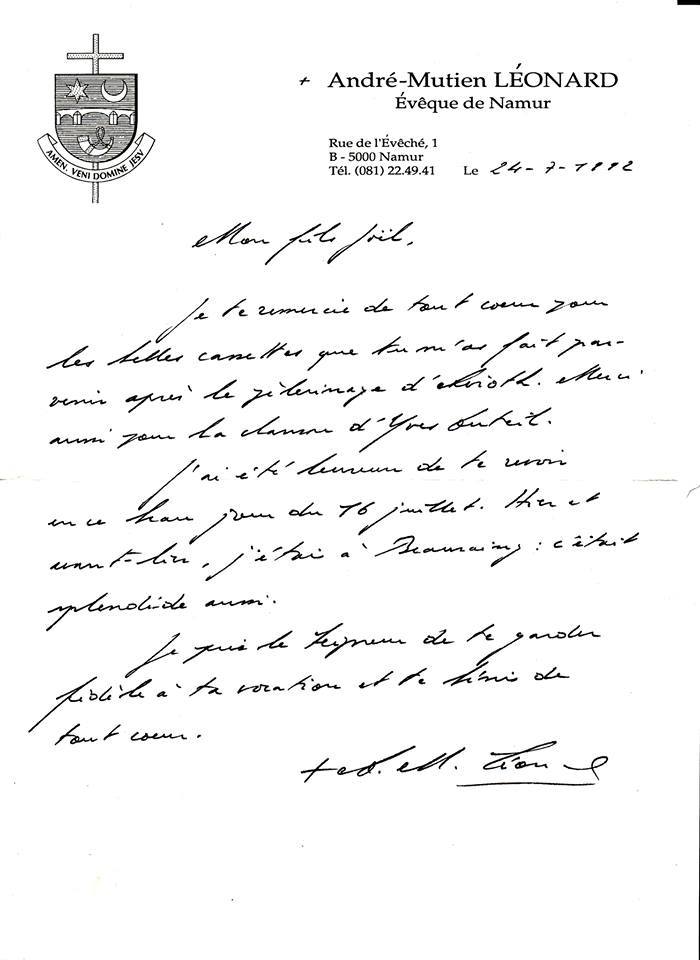 AMEN. VENI DOMINE JESV
+ André-Mutien LÉONARD
Évêque de Namur
Rue de l'Évêché, 1
B - 5000 Namur
Tél. (081) 22.49.41 Le 24-7-1992
Mon fils Joël,
Je te remercie de tout coeur pour
les belles cassettes que tu m'as fait par-
venir après le pèlerinage d'Avioth. Merci
aussi pour la chanson d'Yves Duteil.
J'ai été heureux de te revoir
en ce beau jour du 16 juillet. Hier et
avant-hier, j'étais à Beauraing : c'était
splendide aussi.
Je prie le Seigneur de te garder
fidèle à ta vocation et te bénis de
tout coeur.
+ A. M. Léonard